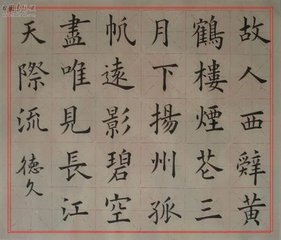 故人西辭黄
鶴樓煙花三
月下揚州孤
帆遠影碧空
盡唯見長江
天際流
德久